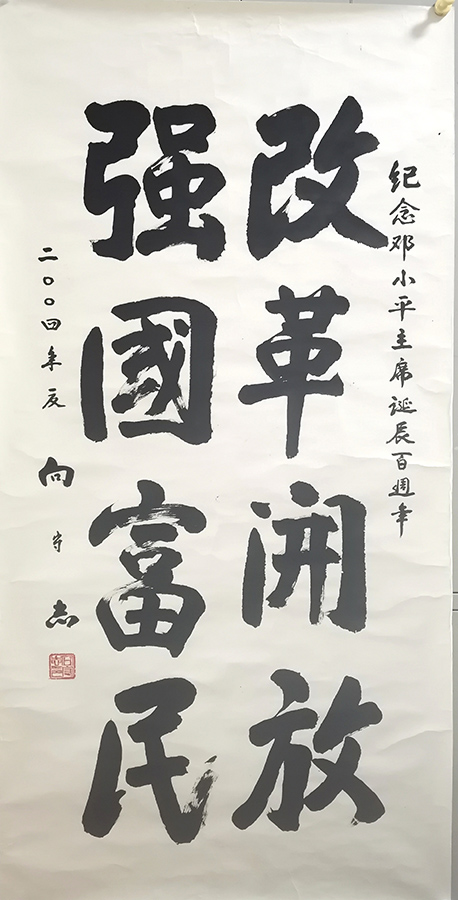 纪念邓小平主席诞辰百週年
改革開放
强國富民
二〇〇四年夏
向守志